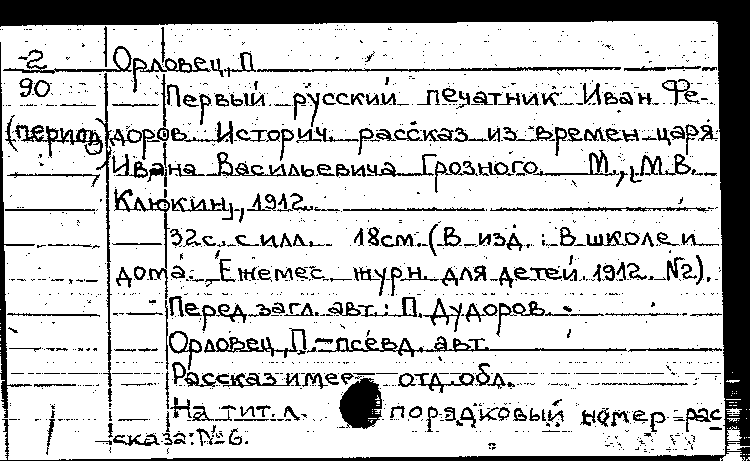 -2 Орловец, П
90 Первый русский печатник Иван Фе-
(период) доров. Историч. рассказ из времен царя
Ивана Васильевича Грозного. М., [М.В.
Клюкин], 1912.
32с. с илл. 18см. (В изд.: В школе и
дома. Ежемес. журн. для детей. 1912. №2).
Перед загл. авт.: П. Дудоров.
Орловец, П. - псевд. авт.
Рассказ имеет отд. обл.
На тит. л. порядковый номер рас
сказа: №6.